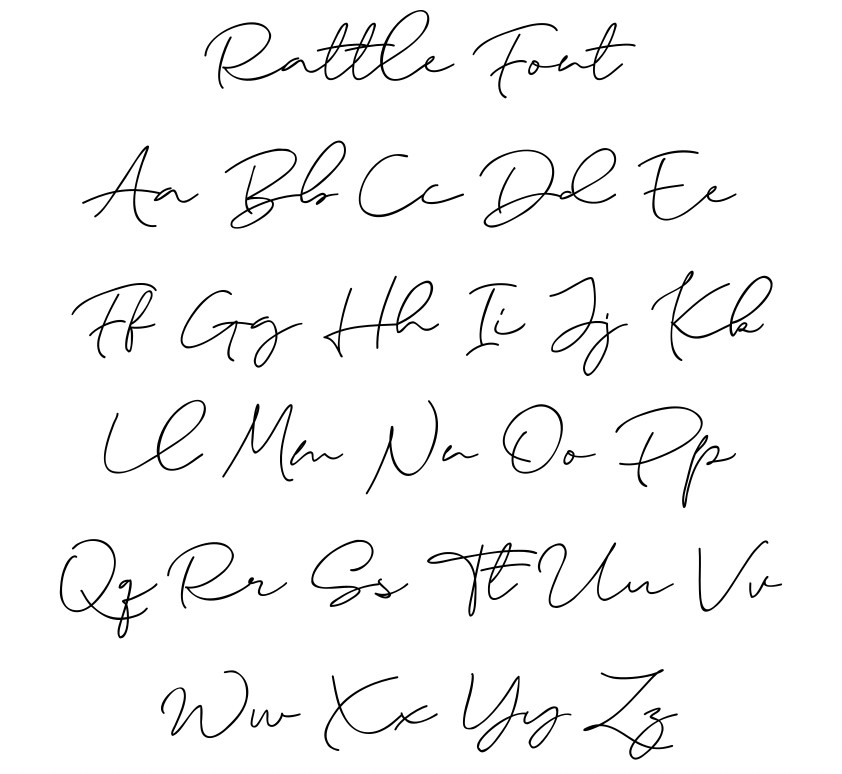 Rattle Font
Aa Bb Cc Dd Ee
Ff Gg Hh Ii Jj Kk
Ll Mm Nn Oo Pp
Qq Rr Ss Tt Uu Vv
Ww Xx Yy Zz